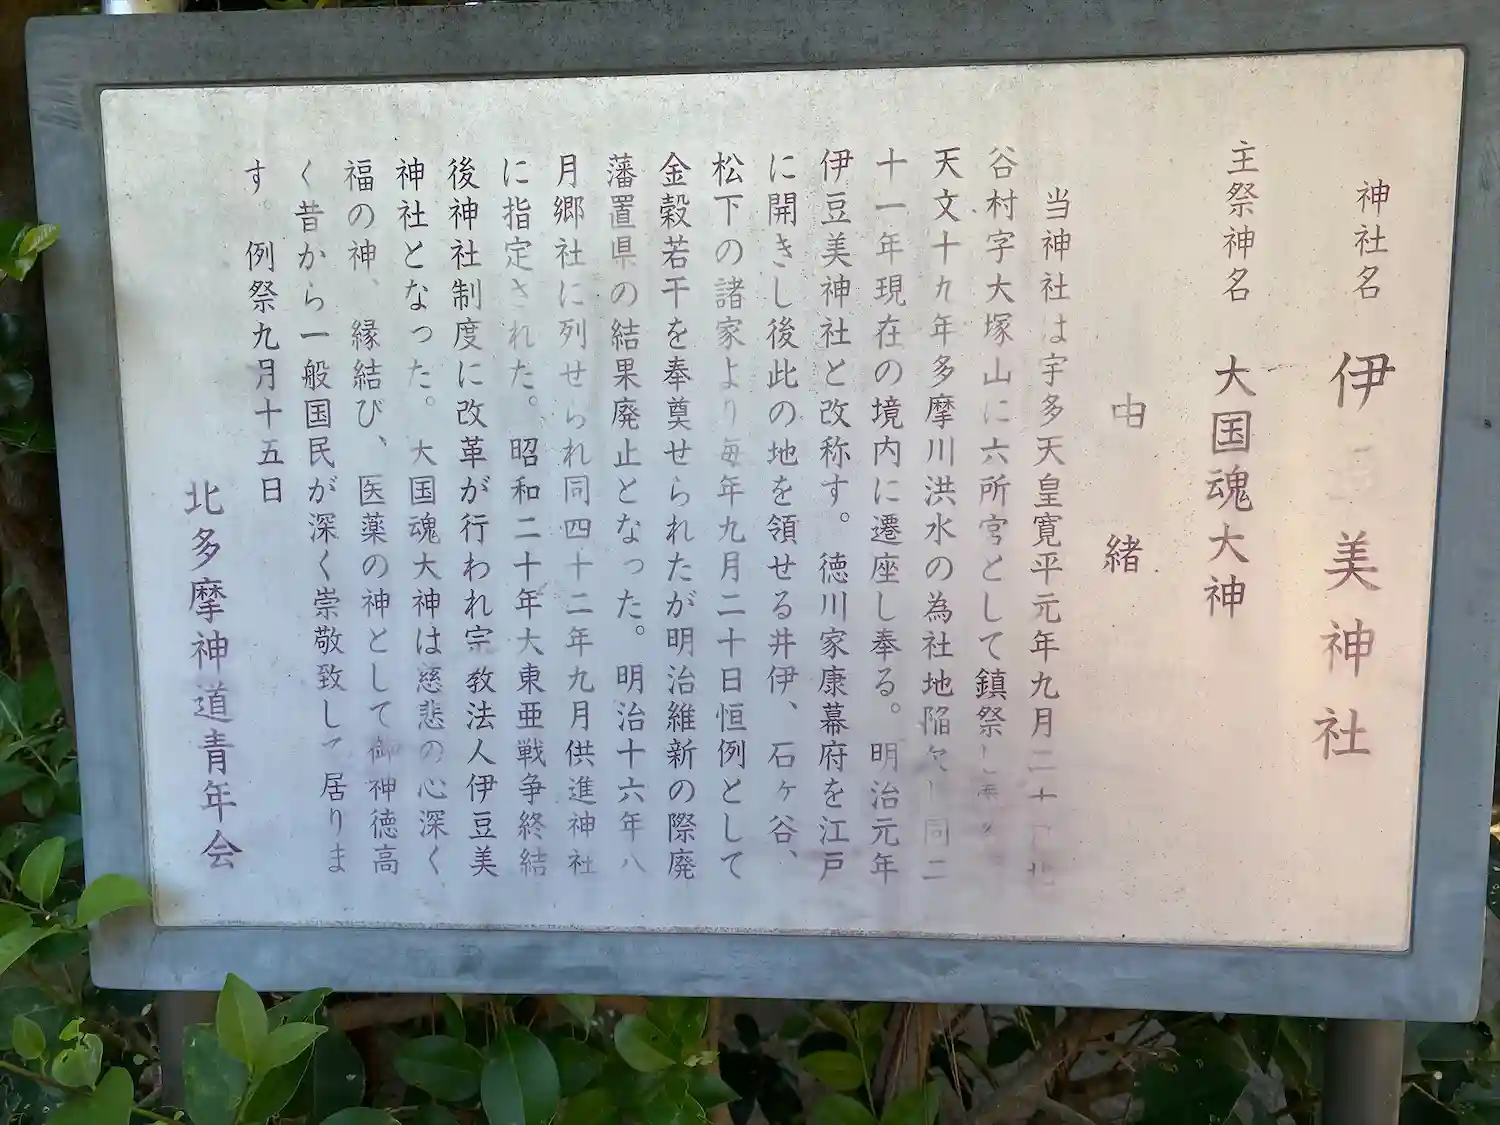 神社名 伊豆美神社
主祭神名 大国魂大神
由緒
当神社は宇多天皇寛平元年九月二十
谷村字大塚山に六所宮として鎮祭し
天文十九年多摩川洪水の為社地陥欠し同二
十一年現在の境内に遷座し奉る。明治元年
伊豆美神社と改称す。徳川家康幕府を江戸
に開きし後此の地を領せる井伊、石ヶ谷、
松下の諸家より毎年九月二十日恒例として
金穀若干を奉奠せられたが明治維新の際廃
藩置県の結果廃止となった。明治十六年八
月郷社に列せられ同四十二年九月供進神社
に指定された。昭和二十年大東亜戦争終結
後神社制度に改革が行われ宗教法人伊豆美
神社となった。大国魂大神は慈悲の心深く
福の神、縁結び、医薬の神として御神徳高
く昔から一般国民が深く崇敬致して居りま
す。例祭九月十五日
北多摩神道青年会